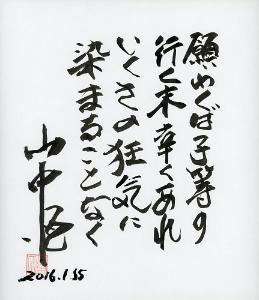 願わくば子等の
行く末幸くあれ
いくさの狂気に
染まることなく
山中恒
2016.1.15